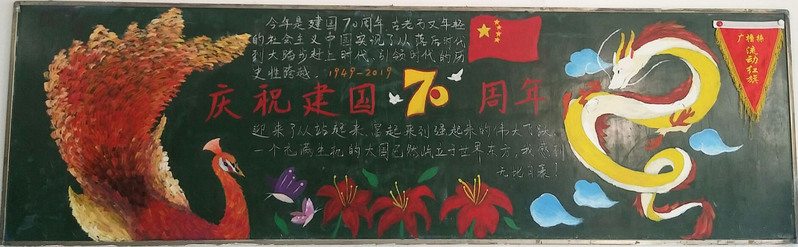 今年是建国70周年 古老而又年轻
的社会主义中国实现了从落后时代
到大踏步赶上时代、引领时代的历
史性跨越。1949-2019
庆祝建国70周年
迎来了从站起来、富起来到强起来的伟大飞跃,
一个充满生机的大国已然屹立于世界东方,我感到
无比自豪!
广播操
流动红旗